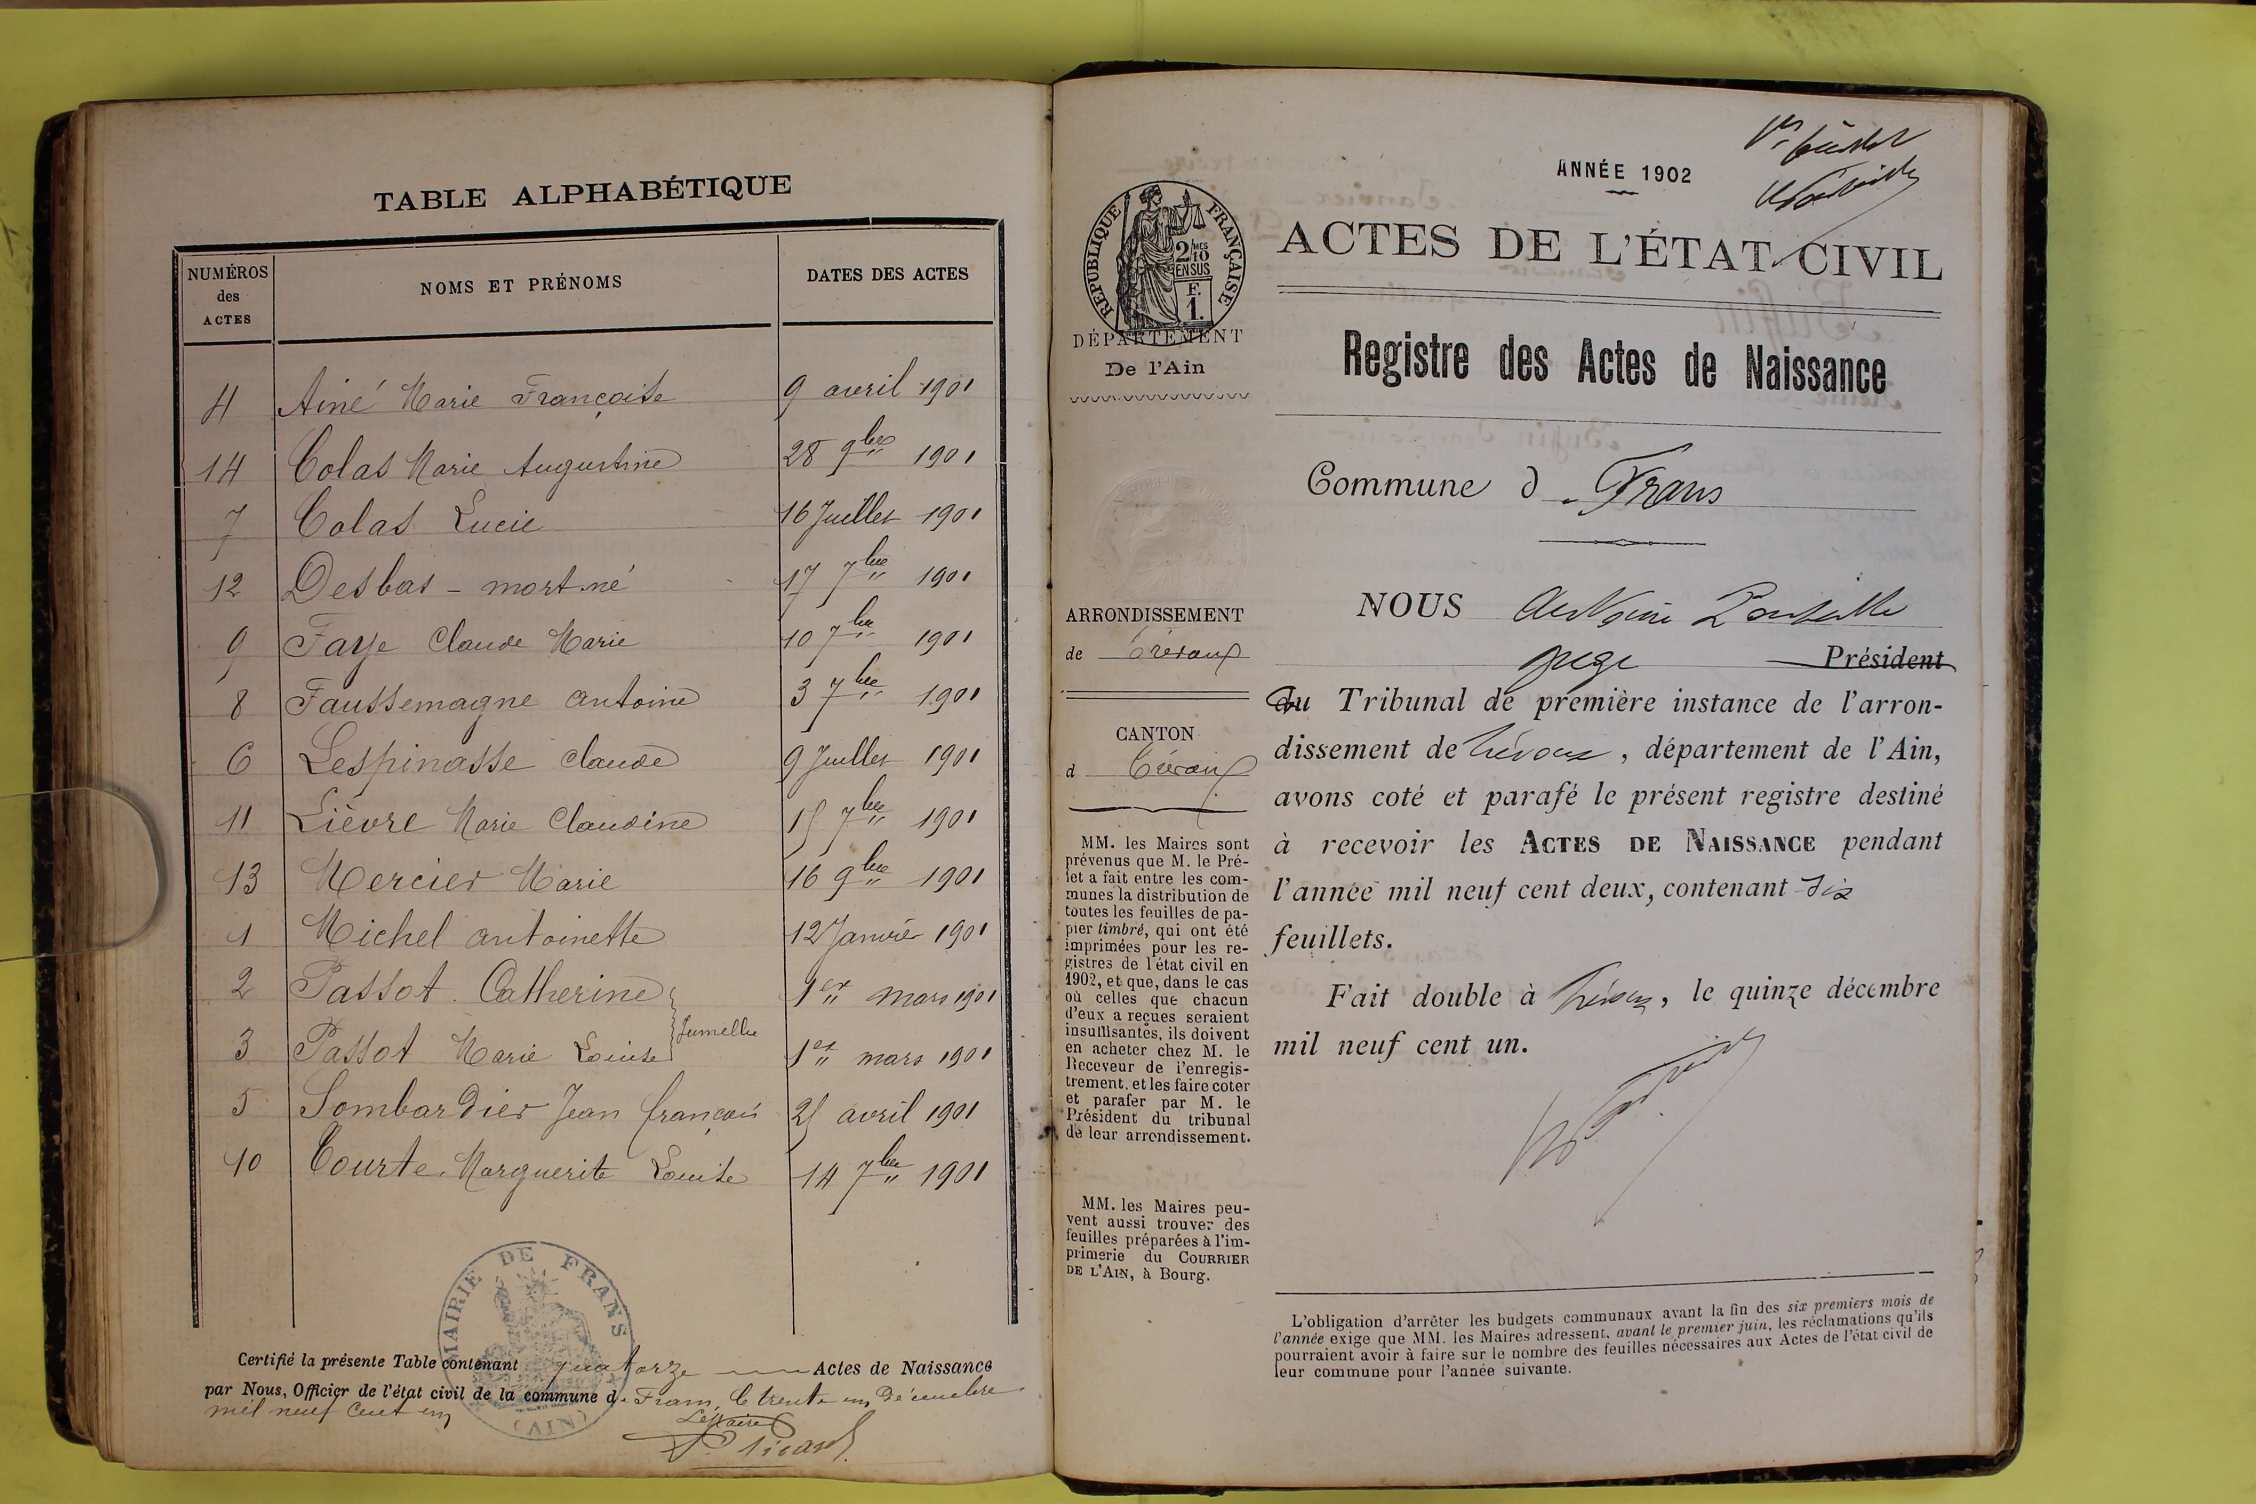 TABLE ALPHABÉTIQUE
NUMÉROS des ACTES NOMS ET PRÉNOMS DATES DES ACTES
4 Ainé Marie Françoise 9 avril 1901
14 Colas Marie Augustine 28 9bre 1901
7 Colas Lucie 16 Juillet 1901
12 Desbas - mort-né 17 7bre 1901
9 Faye Claude Marie 10 7bre 1901
8 Faussemagne Antoine 3 7bre 1901
6 Lespinasse Claude 9 Juillet 1901
11 Lièvre Marie Claudine 15 7bre 1901
13 Mercier Marie 16 9bre 1901
1 Michel Antoinette 12 Janvier 1901
2 Passot Catherine 1er mars 1901
Jumelles
3 Passot Marie Louise 1er mars 1901
5 Sombardier Jean françois 25 avril 1901
10 Tourte Marguerite Louise 14 7bre 1901
MAIRIE DE FRANS
(AIN)
Certifié la présente Table contenant quatorze Actes de Naissance
par Nous, Officier de l'état civil de la commune de Frans, le trente un Décembre
mil neuf cent un
Le Maire
P. Picard
ANNÉE 1902
RÉPUBLIQUE FRANÇAISE
2/10 MES
EN SUS
F.
1.
DÉPARTEMENT
De l'Ain
ARRONDISSEMENT
de Trévoux
CANTON
d Trévoux
MM. les Maires sont
prévenus que M. le Pré-
fet a fait entre les com-
munes la distribution de
toutes les feuilles de pa-
pier timbré, qui ont été
imprimées pour les re-
gistres de l'état civil en
1902, et que, dans le cas
où celles que chacun
d'eux a reçues seraient
insuffisantes, ils doivent
en acheter chez M. le
Receveur de l'enregis-
trement, et les faire coter
et parafer par M. le
Président du tribunal
de leur arrondissement.
MM. les Maires peu-
vent aussi trouver des
feuilles préparées à l'im-
primerie du COURRIER
DE L'AIN, à Bourg.
ACTES DE L'ÉTAT CIVIL
Registre des Actes de Naissance
Commune d Frans
NOUS Antoine
juge Président
du Tribunal de première instance de l'arron-
dissement de Trévoux, département de l'Ain,
avons coté et parafé le présent registre destiné
à recevoir les ACTES DE NAISSANCE pendant
l'année mil neuf cent deux, contenant
feuillets.
Fait double à Trévoux, le quinze décembre
mil neuf cent un.
L'obligation d'arrêter les budgets communaux avant la fin des six premiers mois de
l'année exige que MM. les Maires adressent, avant le premier juin, les réclamations qu'ils
pourraient avoir à faire sur le nombre des feuilles nécessaires aux Actes de l'état civil de
leur commune pour l'année suivante.